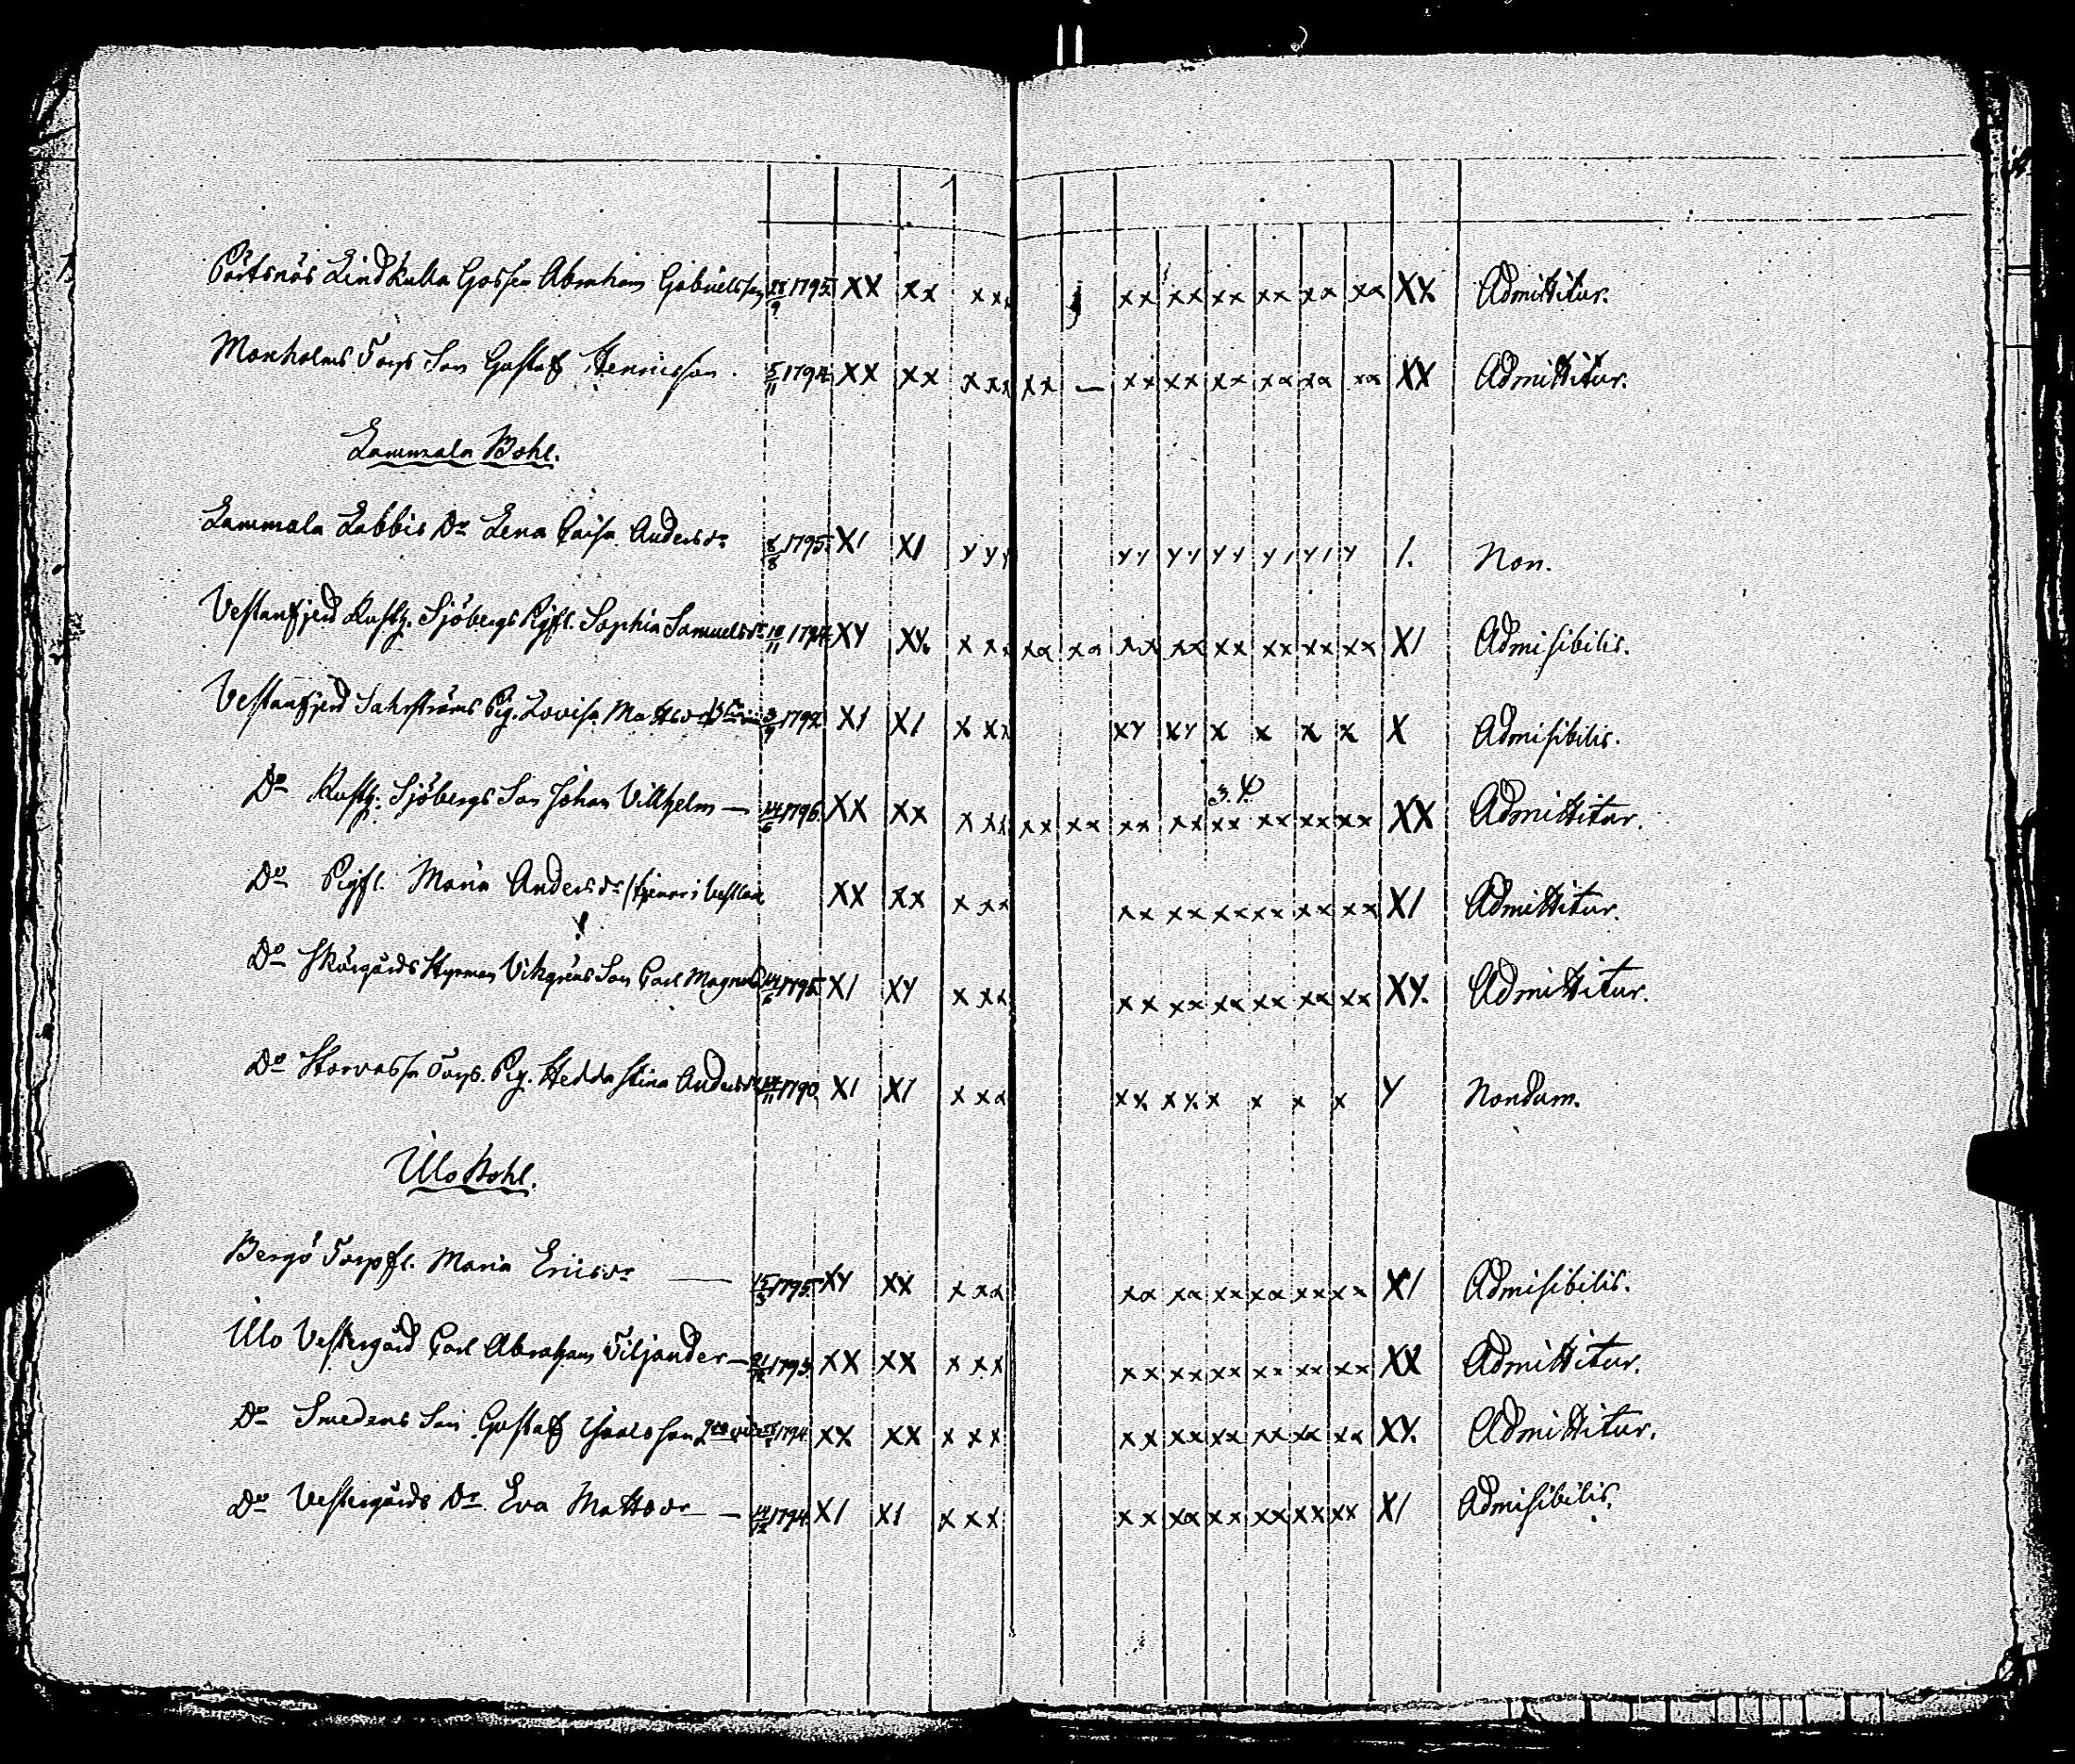 Pörtsnäs Lindkulla Gossen Abraham Gabrielsson 28/9 1795. XX xx xxx xx xx xx xx xx xx XX Admittitur.
Monholms Torps Son Gustaf Henricsson. 5/11 1794. XX XX xxx xx — xx xx xx xx xx xx XX Admittitur.
Lammala Bohl.
Lammala Labbis Dr Lena Caisa Andersdr 8/8 1795. XI XI yyy yy yy yy y/ y/ y /. Non.
Vestanfjerd Rusth. Sjöbergs Pigfl. Sophia Samuelsdr 10/11 1794. XY XX. xxx xx xx xx xx xx xx xx xx XI Admisibilis.
Vestanfjerd Pig. Lovisa Mattsdr 1794. XI XI xxx xy xy x x x x X Admisibilis.
Do Rusth. Sjöbergs Son Johan Vilhelm — 14/6 1796. XX XX xxx xx xx xx xx xx xx xx xx XX Admittitur.
3. 4.
Do Pigfl. Maria Andersdr (tjenar i XX XX xxx xx xx xx xx xx xx XI Admittitur.
Do Skärgårds Styrman Vikgréns Son Carl Magnus 14/6 1795. XI XY xxx xx xx xx xx xx xx XY. Admittitur.
Do Storvassa Torp. Pig. Hedda Stina Andersdr 1790. XI XI xxx xx xx x x x x Y Nondum.
Ülo Bohl.
Bergö Torpfl. Maria Ericsdr — 15/3 1795. XY XX xxx xx xx xx xx xx xx XI Admisibilis.
Ülo Vestergård Carl Abraham Viljander — 1793. XX XX xxx xx xx xx xx xx xx XX Admittitur.
Do Smedens Son Gustaf 1794 XX XX xxx xx xx xx xx xx xx XY. Admittitur.
Do Vestergårds Dr. Eva Mattsdr — 14/12 1794. XI XI xxx xx xx xx xx xx xx XI Admisibilis.